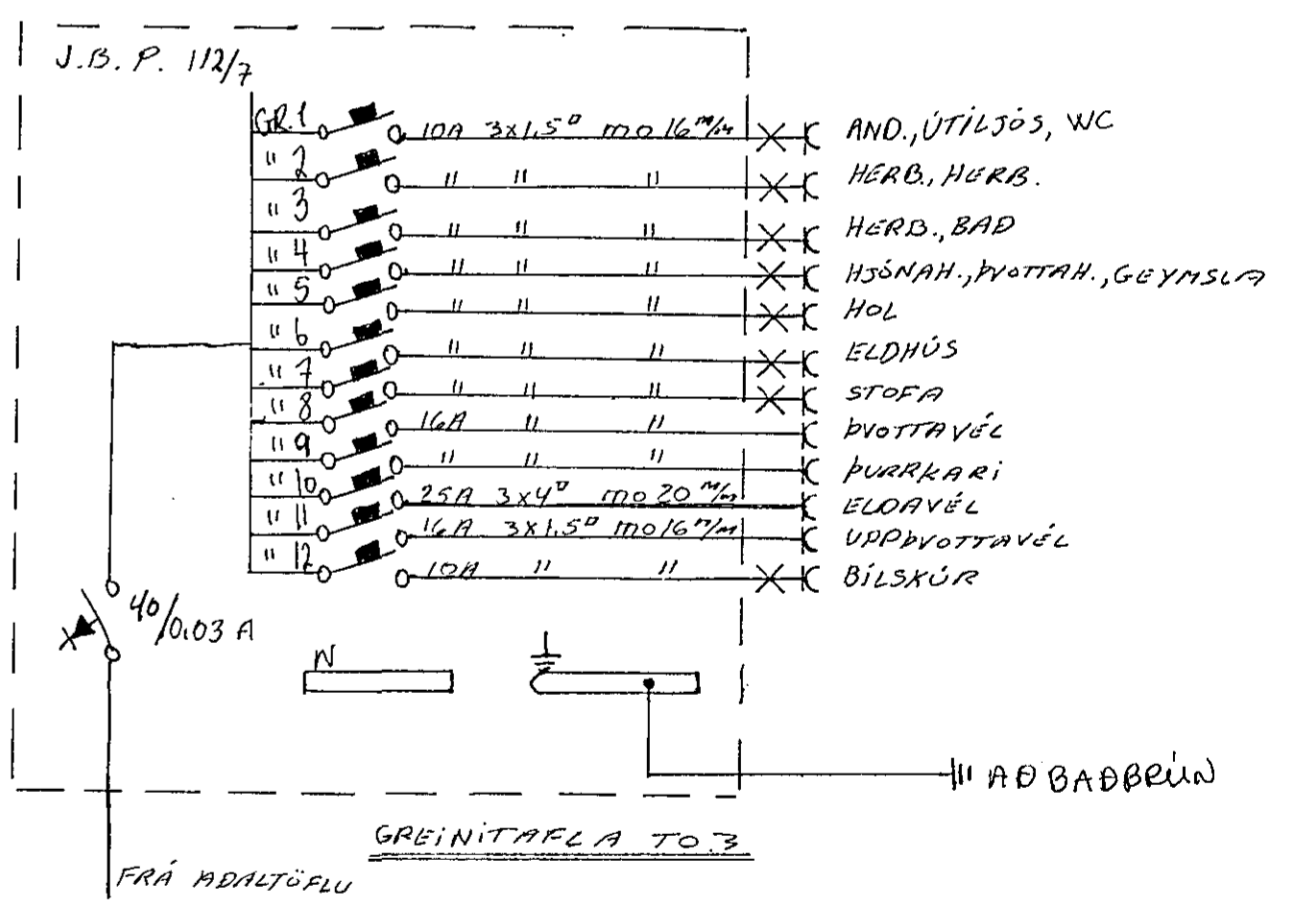 J.B.P. 112/7
GR.1 10A 3x1.5□ mo 16 m/m AND., ÚTILJÓS, WC
" 2 " " " HERB., HERB.
" 3 " " " HERB., BAÐ
" 4 " " " HJÓNAH., ÞVOTTAH., GEYMSLA
" 5 " " " HOL
" 6 " " " ELDHÚS
" 7 " " " STOFA
" 8 16A " " ÞVOTTAVÉL
" 9 " " " ÞURRKARI
" 10 25A 3x4□ mo 20 m/m ELDAVÉL
" 11 16A 3x1.5□ mo 16 m/m UPPÞVOTTAVÉL
" 12 10A " " BÍLSKÚR
40/0.03 A
N
AÐ BAÐBRÚN
GREINITAFLA TO.3
FRÁ AÐALTÖFLU